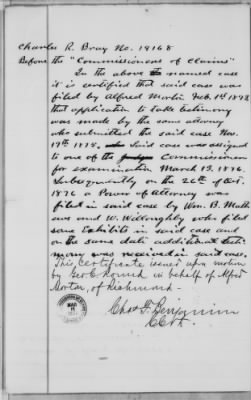 Charles R. Bray No. 19168
Before the "Commissioners of Claims"
In the above named case
it is certified that said case was
filed by Alfred Morton Feb. 1st 1873
that application to take testimony
was made by the same attorney
who submitted the said case Nov.
17th 1875. Said case was assigned
to one of the Commissioners
for examination March 15. 1876.
Subsequently on the 26th of Oct.
1876 a Power of Attorney was
filed in said case by Wm. B. Matth
ews and W. Willoughby who filed
some Exhibits in said case and
on the same date additional testi
mony was received in said case.
This Certificate issued upon motion
by Geo. in behalf of Alfred
Morton, of Richmond
Chas. F. Benjamin